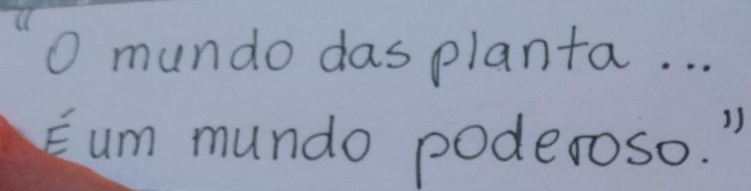 "O mundo das planta...
É um mundo poderoso."